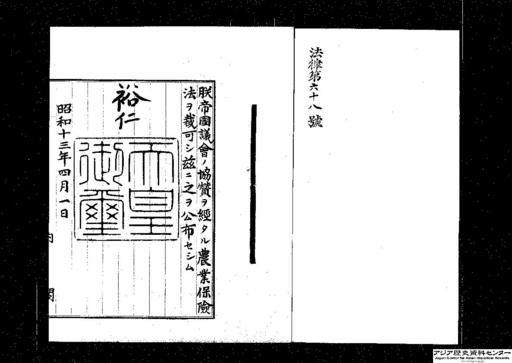 法律第六十八號
朕帝國議會ノ協贊ヲ經タル農業保險
法ヲ裁可シ茲ニ之ヲ公布セシム
裕仁
天皇
御璽
昭和十三年四月一日
内閣
アジア歴史資料センター
Japan Center for Asian Historical Records